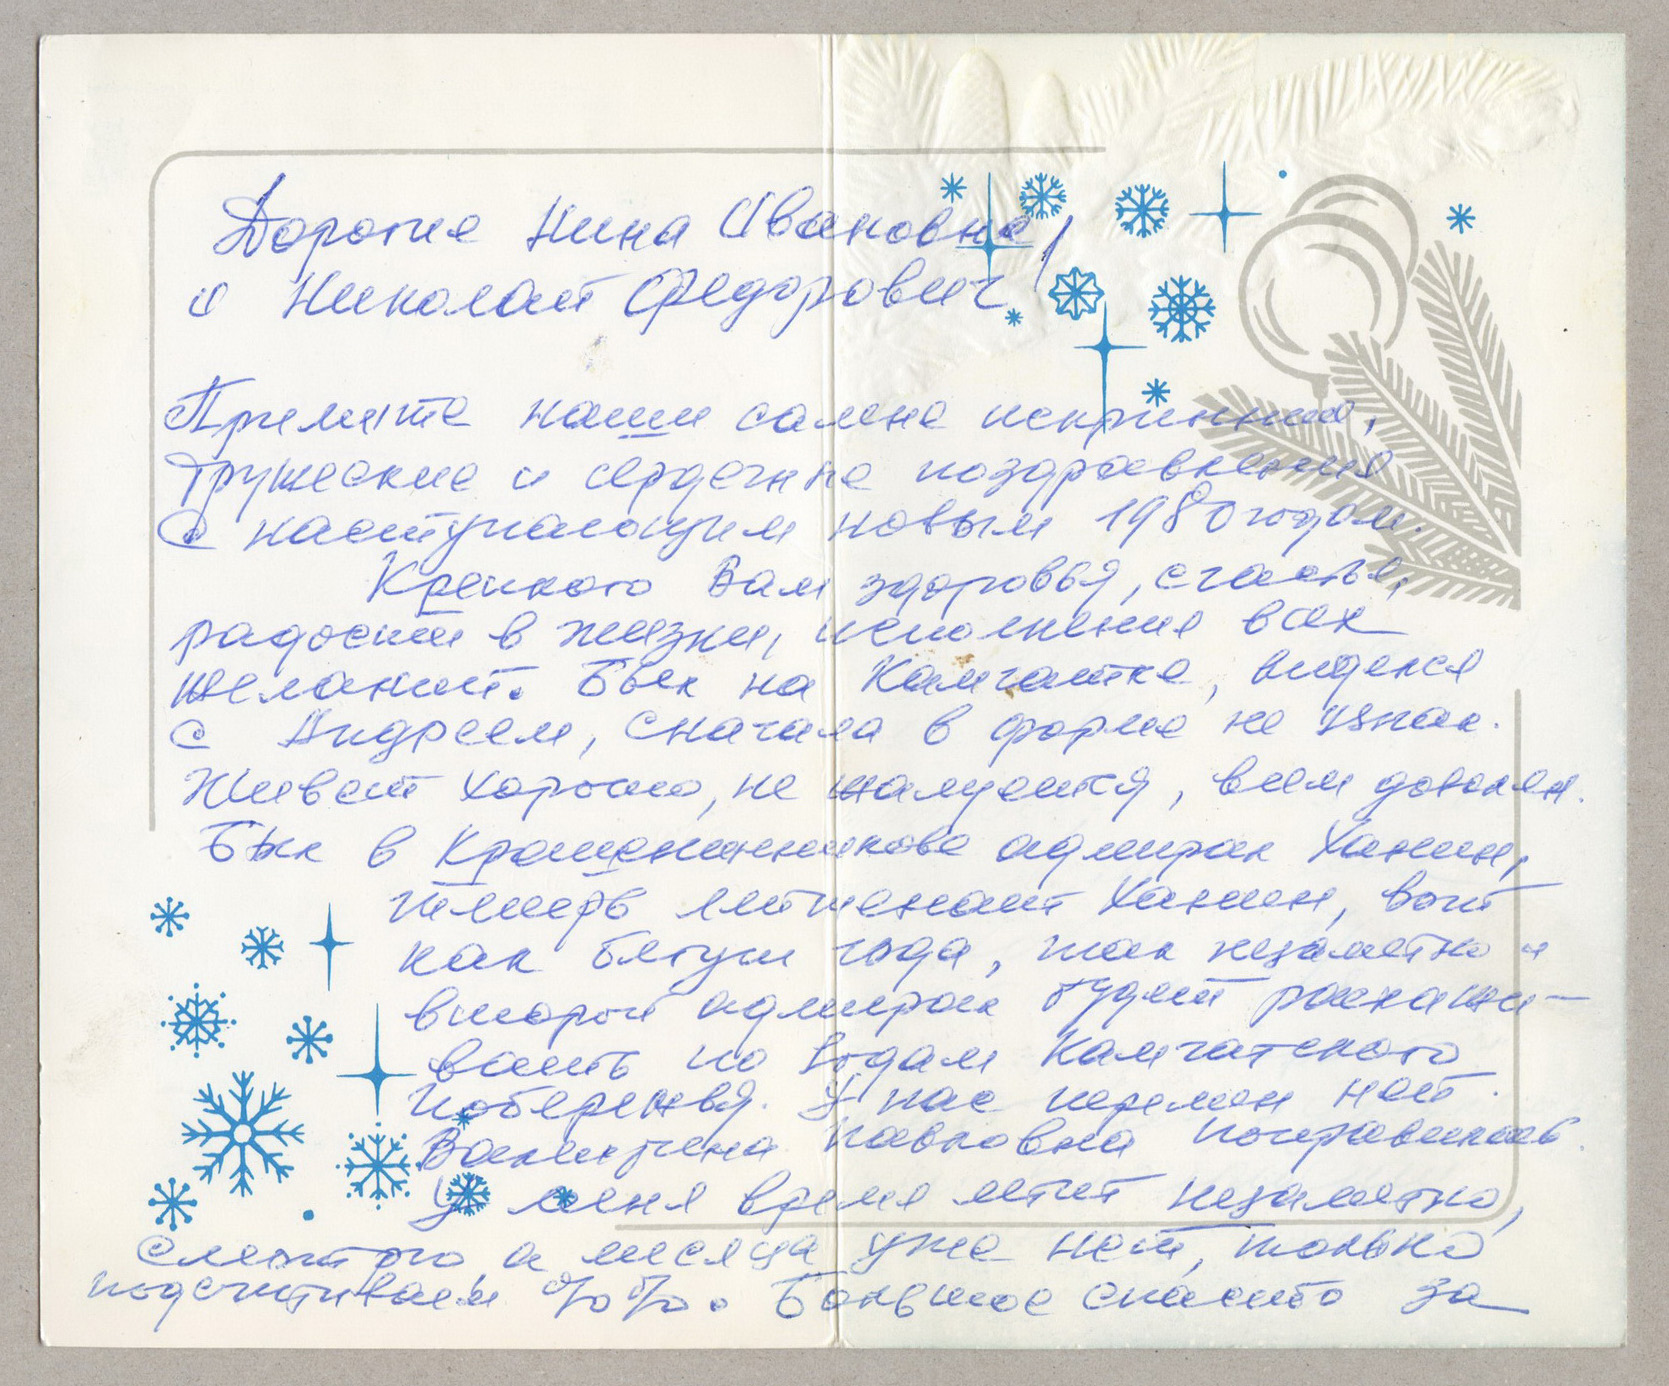 Дорогие Нина Ивановна
и Николай Федорович!
Примите наши самые искринние,
дружеские и сердечные поздравления
с наступающим новым 1980 годом.
Крепкого Вам здоровья, счастья,
радости в жизни, исполнения всех
желаний. Был на Камчатке, виделся
с Андреем, сначала в форме не узнал.
Живет хорошо, не жалуется, всем доволен.
Был в Крашенинникове адмирал Ханин,
теперь лейтенант Ханин, вот
как бегут года, так незаметно и
второй адмирал будет расхажи-
вать по водам Камчатского
побережья. У нас перемен нет.
Валентина Павловна поправилась.
У меня время летит незаметно,
смотрю а месяца уже нет, только
подсчитываем %%. Большое спасибо за